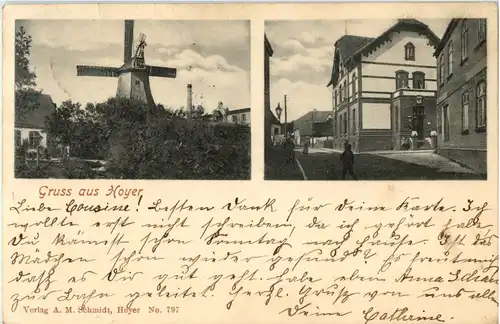 Gruss aus Hoyer.
Liebe Cousine! Besten Dank für Deine Karte. Ich
wollte erst nicht schreiben, da ich gehört habe
Du kämest schon Sonntag nach Hause. Ist das
Mädchen schon wieder gesund? Es freut mich
daß es Dir gut geht. Habe eben Anna
zur Bahn geleitet. Herzl. Gruß von uns alle
Deine Catherine.
Verlag A. M. Schmidt, Hoyer No. 797